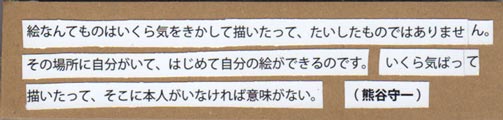 絵なんてものはいくら気をきかして描いたって、たいしたものではありません。
その場所に自分がいて、はじめて自分の絵ができるのです。 いくら気ばって
描いたって、そこに本人がいなければ意味がない。 （熊谷守一）